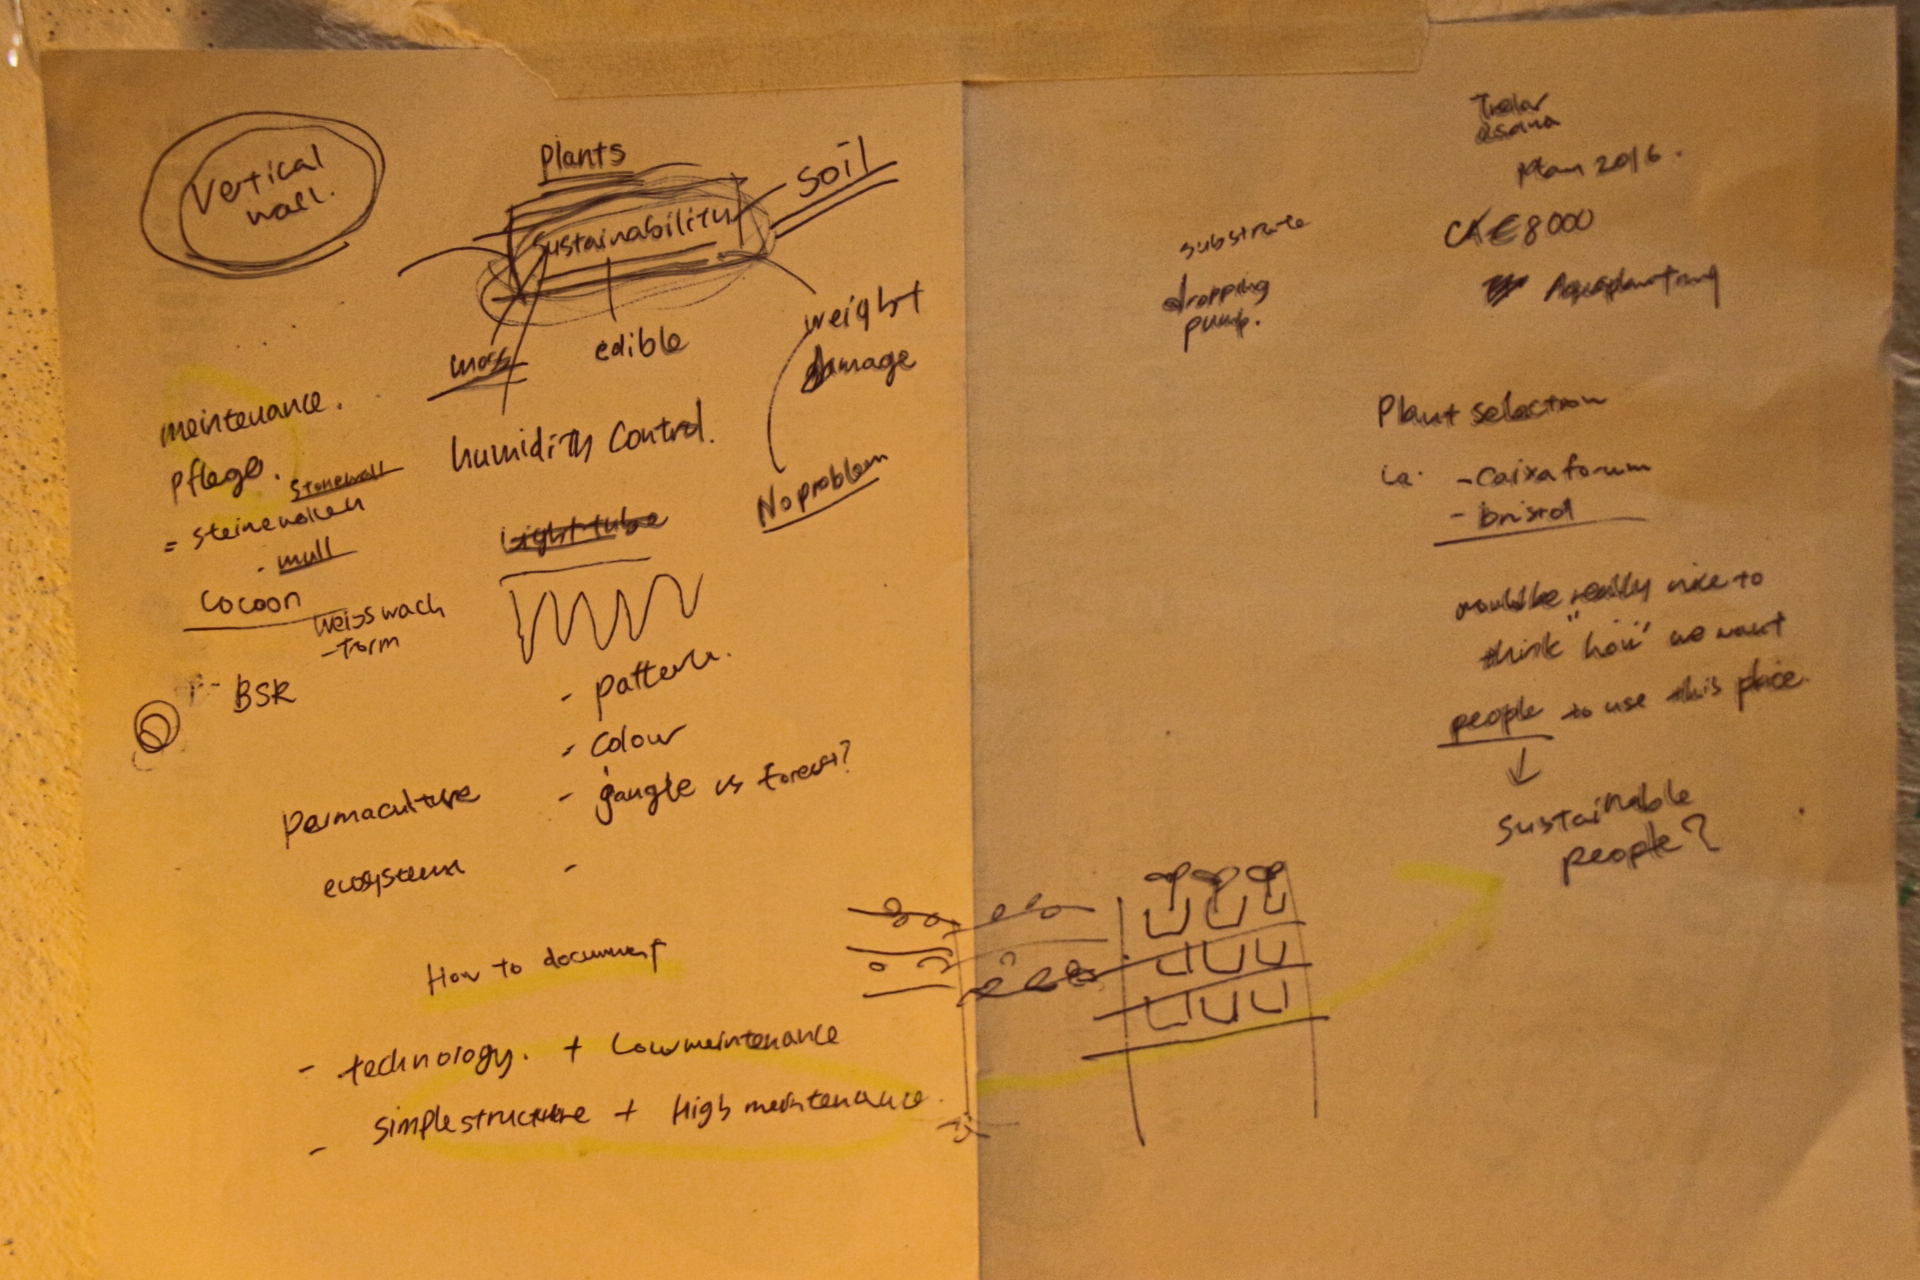 Vertical
wall.
Plants
Soil
Sustainability
moss
edible
weight
damage
meintenance.
pflege.
humidity Control.
No problem
stonewall
= steinewollen
- mull
Light tube
Cocoon
weisswach
-torm
BSR
- pattern.
- Colour
- gangle vs forest?
permaculture
ecosystem
-
How to document
- technology. + Low meintenance
- simple structure + High meintenance.
Plan 2016.
substrate
€8000
dropping
pump.
Aquaplanting
Plant selection
i.e. - Caixa forum
- bristol
would be really nice to
think "how" we want
people to use this place.
↓
Sustainable
people?